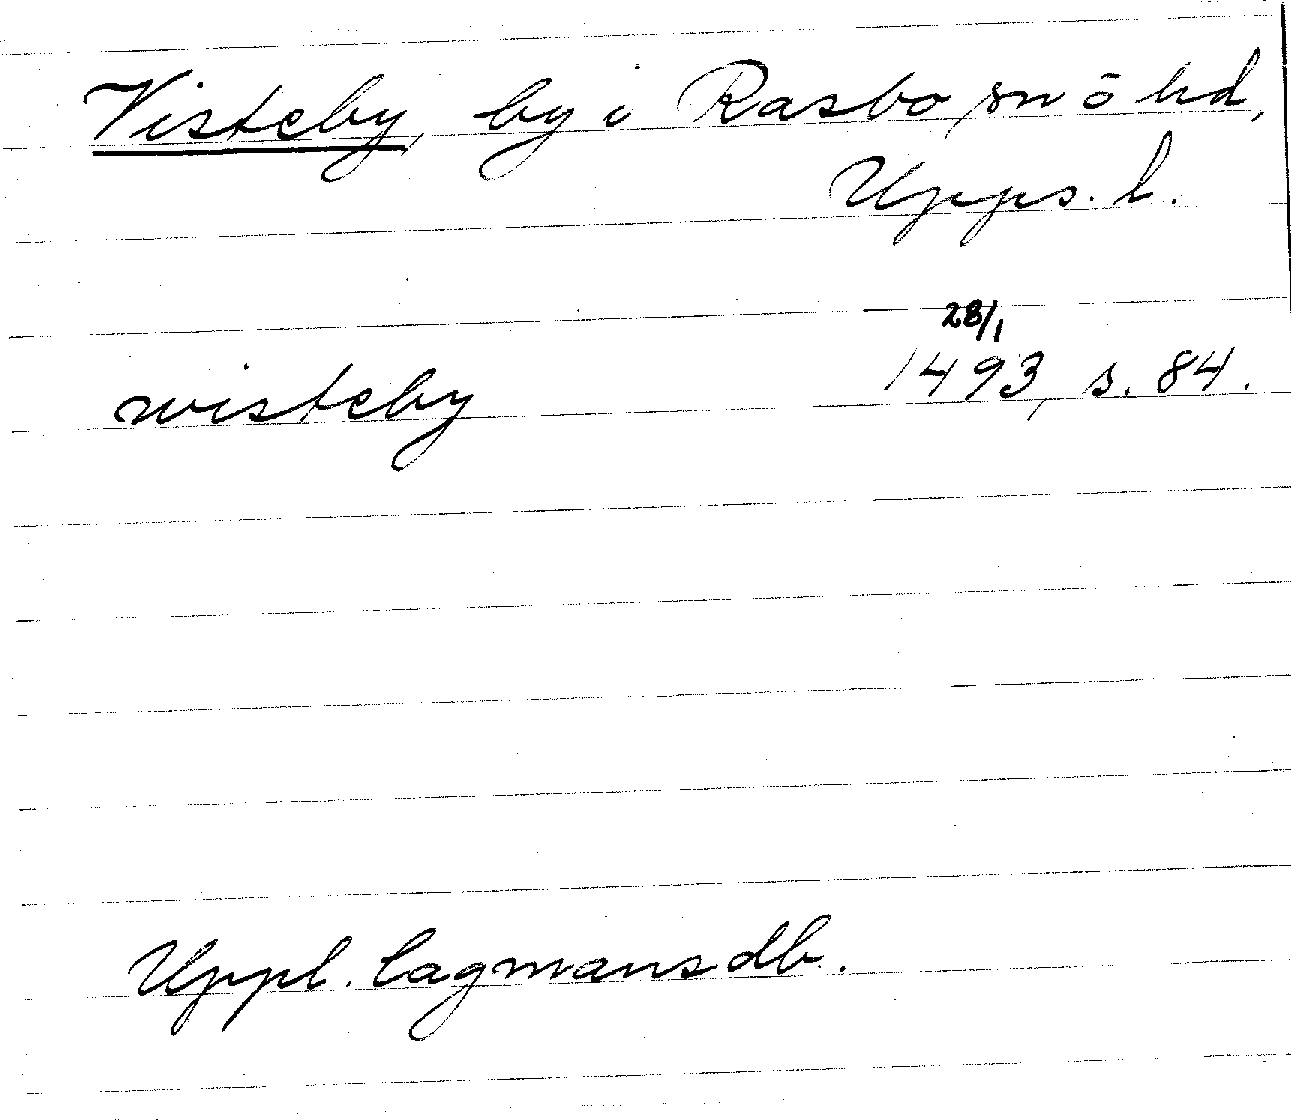 Visteby, by i Rasbo sn o hd,
Upps. l.
28/1
wisteby 1493, s. 84.
Uppl. lagmansdb.